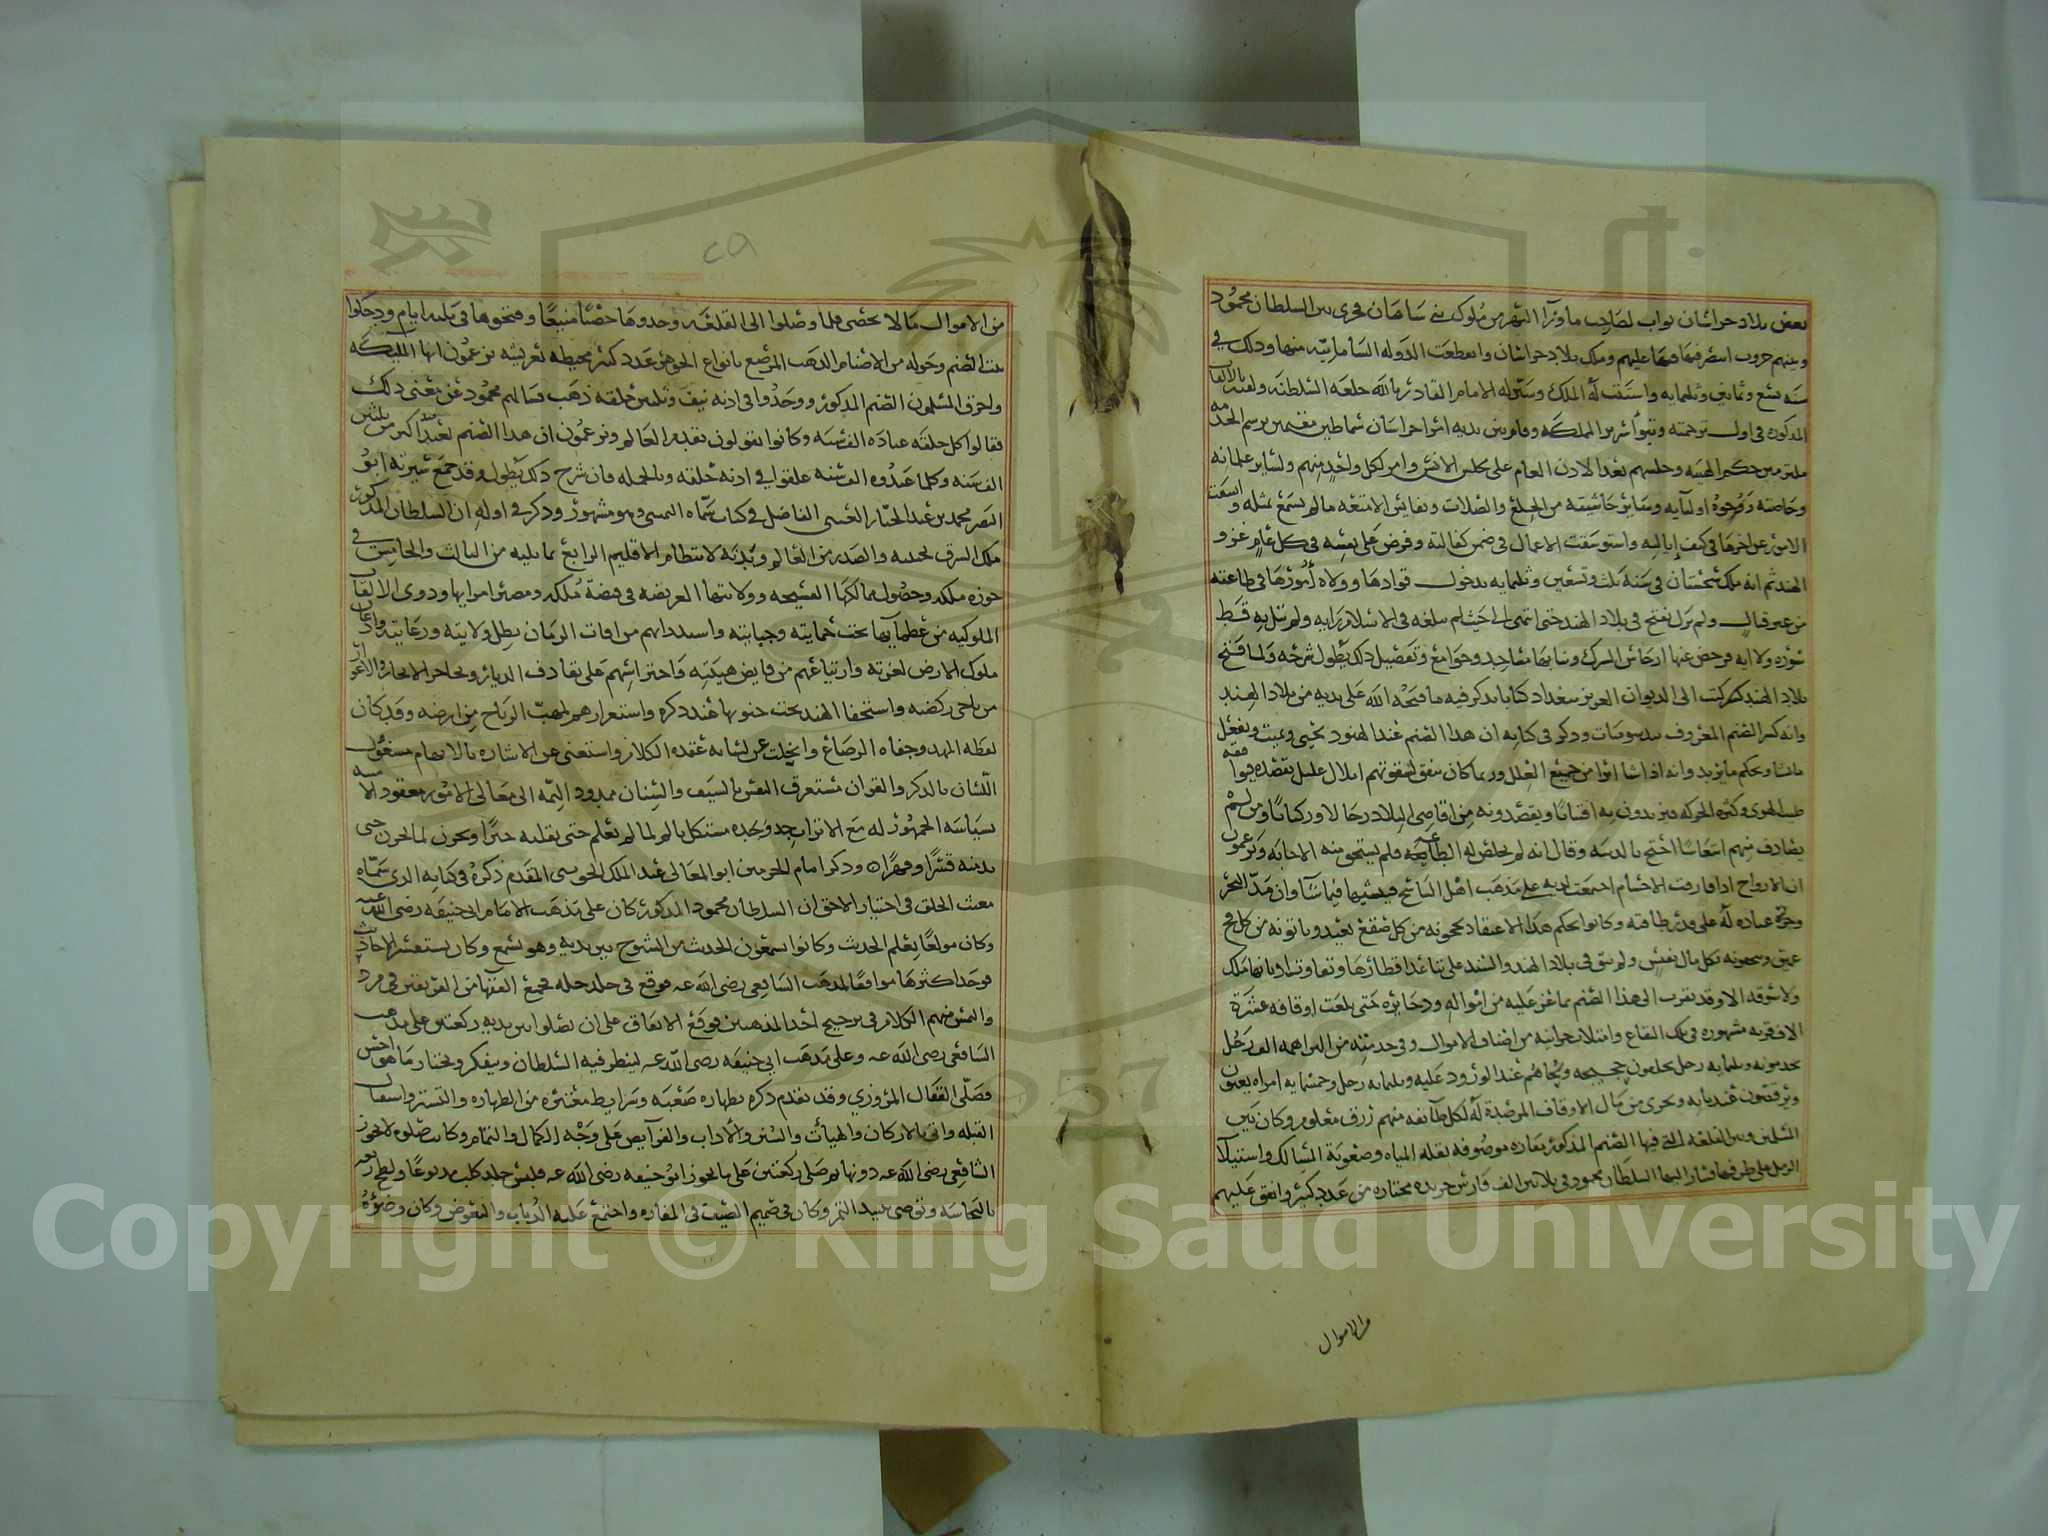 بعض بلاد خراسان نواب لصاحب ماوراء النهر من ملوك بني ساهان فجرى بين السلطان محمود
وبينهم حروب انتصر فيها عليهم وملك بلاد خراسان وانقطعت الدوله السامانيه منها وذلك في
سنه تسع وثمانين وثلثمايه واستتب له الملك وسير له الامام القادر بالله خلعه السلطنه ولقبه الالقاب
المذكوره في اول ترجمته وتبوأ سرير المملكه وقام بين يديه امرا خراسان سماطين مقيمين برسم الخدمه
ملتزمين حكم الهيبه وجلسهم بعد الاذن العام على مجلس الانس وامر لكل واحد منهم ولساير غلمانه
وخاصته ووجوه اوليايه وحاشيته من الخلع والصلات ونفايس الامتعه ما لم يسمع بمثله واتسقت
الامور عن اخرها في كنف ايالته واستوسقت الاعمال في ضمن كفالته وفرض على نفسه في كل عام غزو
الهند ثم انه ملك سجستان في سنه ثلث وتسعين وثلثمايه بدخول قوادها وولاه امورها في طاعته
من غير قتال ولم يزل يفتح في بلاد الهند حتى انتهى الى حيث لم تبلغه في الاسلام رايه ولم تتل به قط
سوره ولا ايه فرحض عنها ارجاس الشرك وبنا بها مساجد وجوامع وتفصيل ذلك يطول شرحه ولما فتح
بلاد الهند كتب الى الديوان العزيز ببغداد كتابا يذكر فيه ما فتحه الله على يديه من بلاد الهند
وانه كسر الصنم المعروف بسومنات وذكر في كتابه ان هذا الصنم عند الهنود يحيي ويميت ويفعل
ما يشا ويحكم ما يريد وانه اذا شا ابرا من جميع العلل وربما كان يتفق لشقوتهم ابلال عليل يقصده فيوافقه
طيب الهوى وكثره الحركه فيزيدون به افتتانا ويقصدونه من اقاصي البلاد رجالا وركبانا ومن لم
يصادف منهم انتعاشا احتج بالذنب وقال انه لم يخلص له الطاعه فلم يستحق منه الاجابه ويزعمون
ان الارواح اذا فارقت الاجسام اجتمعت لديه على مذهب اهل التناسخ فينشيها فيما شا وان مد البحر
وجزره عباده له على قدر طاقته وكانوا بحكم هذا الاعتقاد يحجونه من كل صقع بعيد وياتونه من كل فج
عميق ويتحفونه بكل مال نفيس ولم يبق في بلاد الهند والسند على تباعد اقطارها وتفاوت اديانها ملك
ولا سوقه الا وقد تقرب الى هذا الصنم بما عز عليه من امواله وذخايره حتى بلغت اوقافه عشرة
الاف قريه مشهوره في تلك البقاع وامتلات خزانته من اصناف الاموال وفي خدمته من البراهمه الف رجل
يخدمونه وثلثمايه رجل يحلقون حجيجه ولحاهم عند الورود عليه وثلثمايه رجل وخمسمايه امراه يغنون
ويرقصون عند بابه ويجرى من مال الاوقاف المرصدة له لكل طايفه منهم رزق معلوم وكان بين
المسلمين وبين القلعه التي فيها الصنم المذكور مفازه موصوفه بقله المياه وصعوبة المسالك واستيلا
الرمل على طرقها فسار اليها السلطان محمود في ثلاثين الف فارس جريده مختاره من عدد كثير وانفق عليهم
من الاموال
٢٩
من الاموال ما لا يحصى فلما وصلوا الى القلعه وجدوها حصنا منيعا وفتحوها في ثلثه ايام ودخلوا
بيت الصنم وحوله من الاصنام الذهب المرصع بانواع الجوهر عدد كثير محيطه بعرشه يزعمون انها الملايكه
واحرق المسلمون الصنم المذكور ووجدوا في اذنه نيف وثلثين حلقه ذهب فسالهم محمود عن معنى ذلك
فقالوا كل حلقه عباده الف سنه وكانوا يقولون بقدم العالم ويزعمون ان هذا الصنم يعبد منذ اكثر من ثلثين
الف سنه وكلما عبدوه الف سنه علقوا في اذنه حلقه وبالجمله فان شرح ذلك يطول وقد جمع سيرته ابو
النصر محمد بن عبد الجبار العتبي الفاضل في كتاب سماه اليميني وهو مشهور وذكر في اوله ان السلطان المذكور
ملك الشرق بجنبيه والصدر من العالم ويديه لانتظام الاقليم الرابع بما يليه من الثالث والخامس في
حوزه ملكه وحصول ممالكها الفسيحه وولاياتها العريضه في قبضة ملكه ومصير امرايها وذوي الالقاب
الملوكيه من عظمايها تحت حمايته وجبايته واستدراهم من افات الزمان بظل ولايته ورعايته واذعان
ملوك الارض لعزته وارتياعهم من فايض هيبته واحتراسهم على تقاذف الديار وتحاجز الانجاد والاغوار
من فاجي ركضته واستخفا الهند تحت جنوبها عند ذكره واقشعرارهم لمهب الرياح من ارضه وقد كان
لفظه المهد وجفاه الرضاع وانحلت عن لسانه عقده الكلام واستغنى عن الاشاره بالافهام مشغول
اللسان بالذكر والقران مستغرق النفس بالسيف والسنان ممدود الهمه الى معالي الامور معقود الامنيه
بسياسه الجمهور له مع الاتراب جد وجده مستكد يالم لما لم يعلم حتى يقتله خبرا ويحزن لما يحزن حتى
يدمثه قسرا وقهرا ٥ وذكر امام الحرمين ابو المعالي عبد الملك الجويني المقدم ذكره في كتابه الذي سماه
مغيث الخلق في اختيار الاحق ان السلطان محمود المذكور كان على مذهب الامام ابي حنيفه رضي الله عنه
وكان مولعا بعلم الحديث وكانوا يسمعون الحديث من الشيوخ بين يديه وهو يسمع وكان يستفسر الاحاديث
فوجد اكثرها موافقا لمذهب الشافعي رضي الله عنه فوقع في خلده حكه فجمع الفقها من الفريقين في مرو
والتمس منهم الكلام في ترجيح احد المذهبين فوقع الاتفاق على ان يصلوا بين يديه ركعتين على مذهب
الشافعي رضي الله عنه وعلى مذهب ابي حنيفه رضي الله عنه لينظر فيه السلطان ويتفكر ويختار ما هو احسن
فصلى القفال المروزي وقد تقدم ذكره بطهاره صعبه وشرايط معتبره من الطهاره والتستر واستقبال
القبله واتى بالاركان والهيأت والسنن والاداب والفرايض على وجه الكمال والتمام وكانت صلوه لا يجوز
الشافعي رضي الله عنه دونها ثم صلى ركعتين على ما يجوز ابو حنيفه رضي الله عنه فلبس جلد كلب مدبوغا ولطخ ربعه
بالنجاسه وتوضى بنبيذ التمر وكان في صميم الصيف في المفازه واجتمع عليه الذباب والبعوض وكان وضوؤه